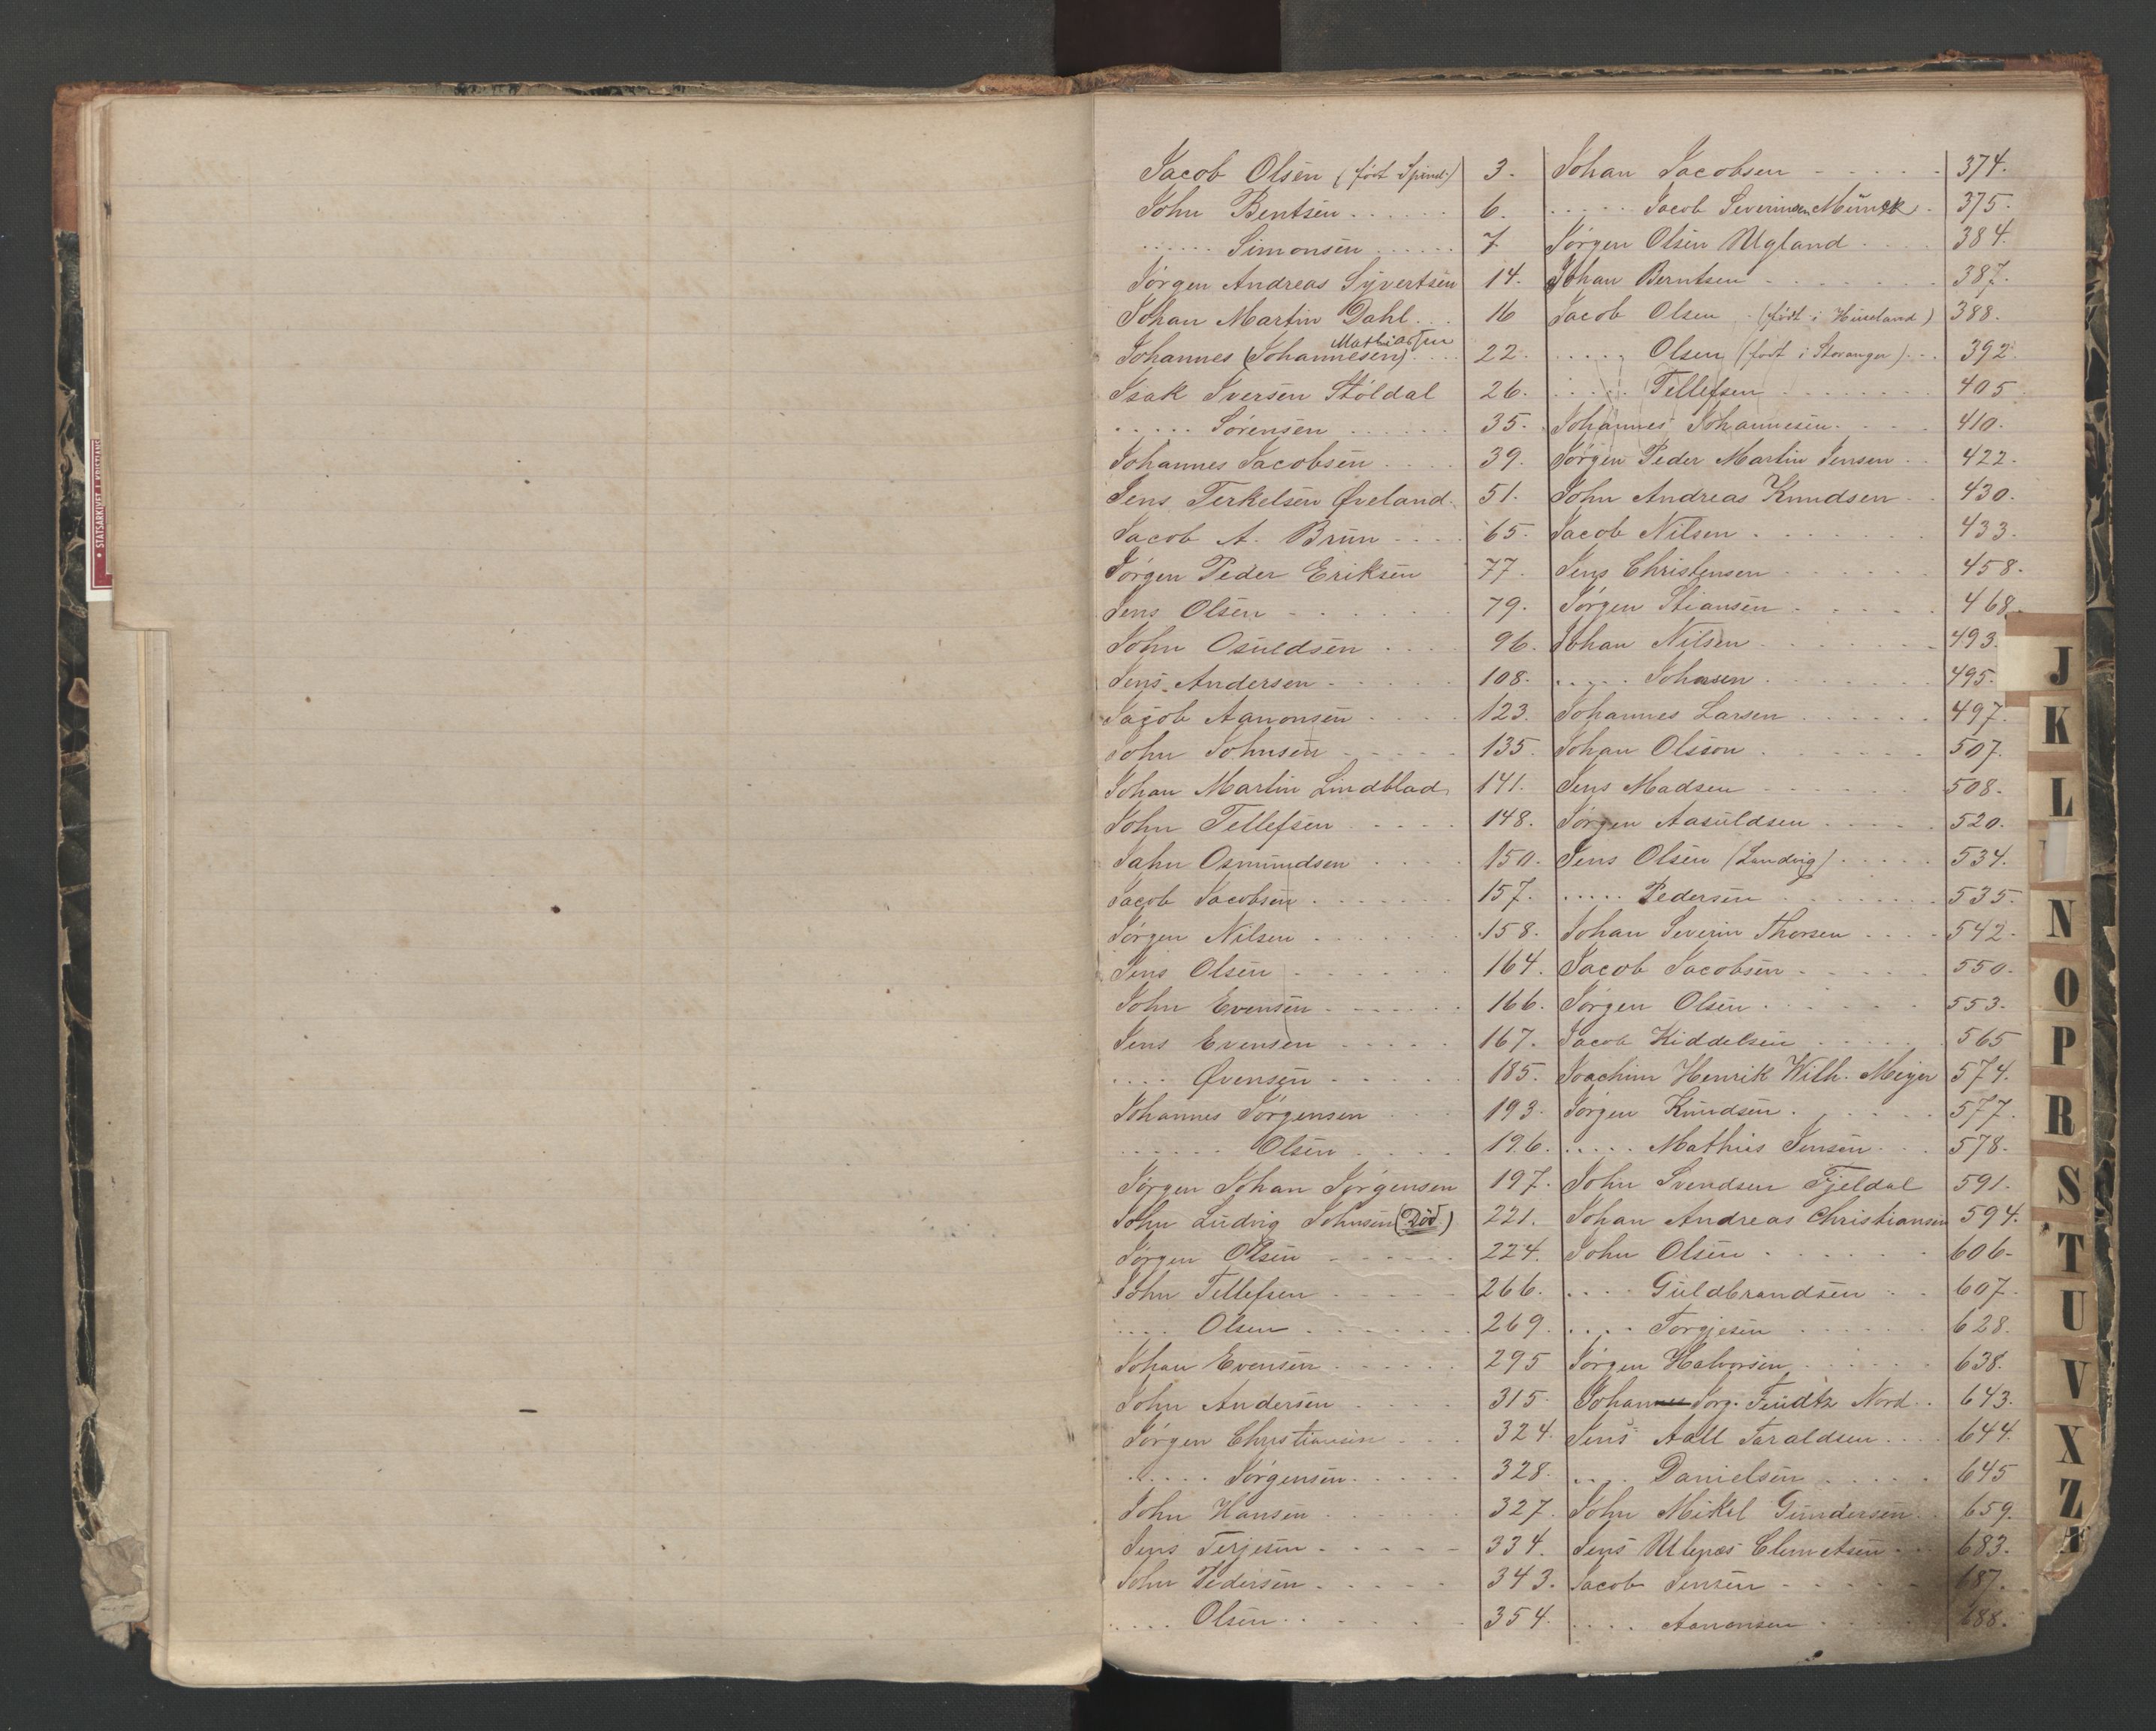 Jacob Olsen (født i Spind.) 3.
John Bentsen 6.
..... Simonsen 7
Jørgen Andreas Syvertsen 14.
Johan Martin Dahl 16
Mathiassen
Johannes (Johannesen) 22.
Isak Iversen Stöldal 26.
..... Sörensen 35.
Johannes Jacobsen 39.
Jens Terkelsen Øveland 51.
Jacob A. Brun 65.
Jørgen Peder Eriksen 77.
Jens Olsen 79.
John Osuldsen 96.
Jens Andersen 108.
Jacob Aanonsen 123.
John Johnsen 135.
Johan Martin Lindblad 141.
John Tellefsen 148.
Jahn Osmundsen 150.
Jacob Jacobsen 157.
Jørgen Nilsen 158.
Jens Olsen 164.
John Evensen 166.
Jens Evensen 167.
.... Øvensen 185.
Johannes Jørgensen 193.
...... Olsen 196.
Jørgen Johan Jørgensen 197.
John Ludvig Johnsen (Död) 221.
Jørgen Olsen 224.
John Tellefsen 266.
.... Olsen 269.
Johan Evensen 295
John Andersen 315.
Jørgen Christiansen 324.
..... Jørgensen 328.
John Hansen 327.
Jens Terjesen 334.
John Pedersen 343.
..... Olsen 354.
Johan Jacobsen 374.
..... Jacob Severinsen Münck 375.
Jørgen Olsen Ugland 384.
Johan Berntsen 387.
Jacob Olsen (født i Huseland) 388.
..... Olsen (født i Stavanger) 392.
..... Tellefsen 405
Johannes Johannesen 410.
Jørgen Peder Martin Jensen 422.
John Andreas Knudsen 430.
Jacob Nilsen 433.
Jens Christensen 458.
Jørgen Stiansen 468.
Johan Nilsen 493.
..... Johnsen 495.
Johannes Larsen 497.
Johan Olsson 507.
Jens Madsen 508.
Jørgen Aasuldsen 520.
Jens Olsen (Landvig) 534.
..... Pedersen 535.
Johan Severin Thorsen 542.
Jacob Jacobsen 550.
Jørgen Olsen 553.
Jacob Kiddelsen 565
Joachim Henrik Wilh. Meyer 574.
Jørgen Knudsen 577.
..... Mathias Jensen 578.
John Svendsen Fjeldal 591.
Johan Andreas Christiansen 594.
John Olsen 606.
.... Guldbrandsen 607.
.... Torgjesen 628.
Jørgen Halvorsen 638.
Johannes Jørg. Nord 643.
Jens Aall Taraldsen 644.
.... Danielsen 645
John Mikel Gundersen 659.
Jens Ulenæs Clemetsen 683.
Jacob Jensen 687.
.... Aanonsen 688.
J
K
L
N
O
P
R
S
T
U
V
X
Z
• STATSARKIVET I KRISTIANS